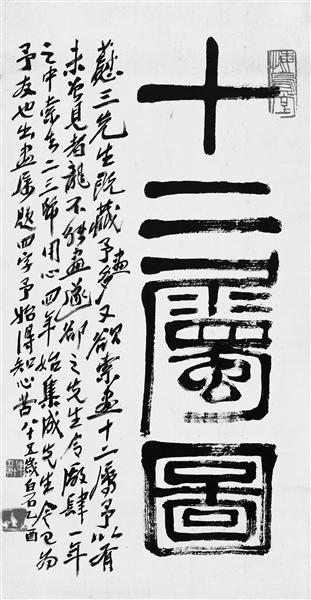 十二屬圖
三先生既藏予畫多又欲索畫十二屬予以有
未曾見者龍不能畫遂却之先生令廠肆一年
之中索二三用心四年始集成先生今已為
予友也出畫屬題四字予始得知心苦八十五歲白石乙酉